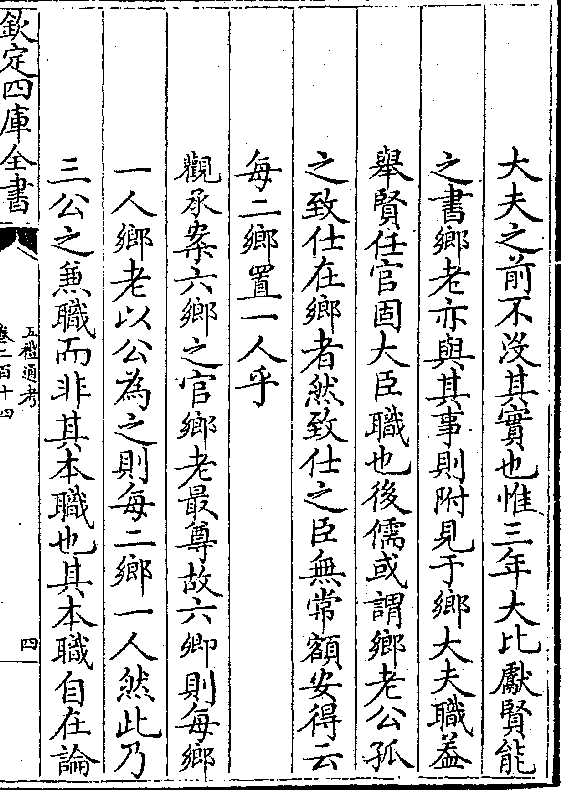 大夫之前不沒其實也惟三年大比獻賢能
之書鄉老亦與其事則附見于鄉大夫職葢
舉賢任官固大臣職也後儒或謂鄉老公孤
之致仕在鄉者然致仕之臣無常額安得云
每二鄉置一人乎
觀承案六鄉之官鄉老最尊故六卿則每鄉
一人鄉老以公為之則每二鄉一人然此乃
三公之兼職而非其本職也其本職自在論
欽定四庫全書
五禮通考
卷二百十四
四